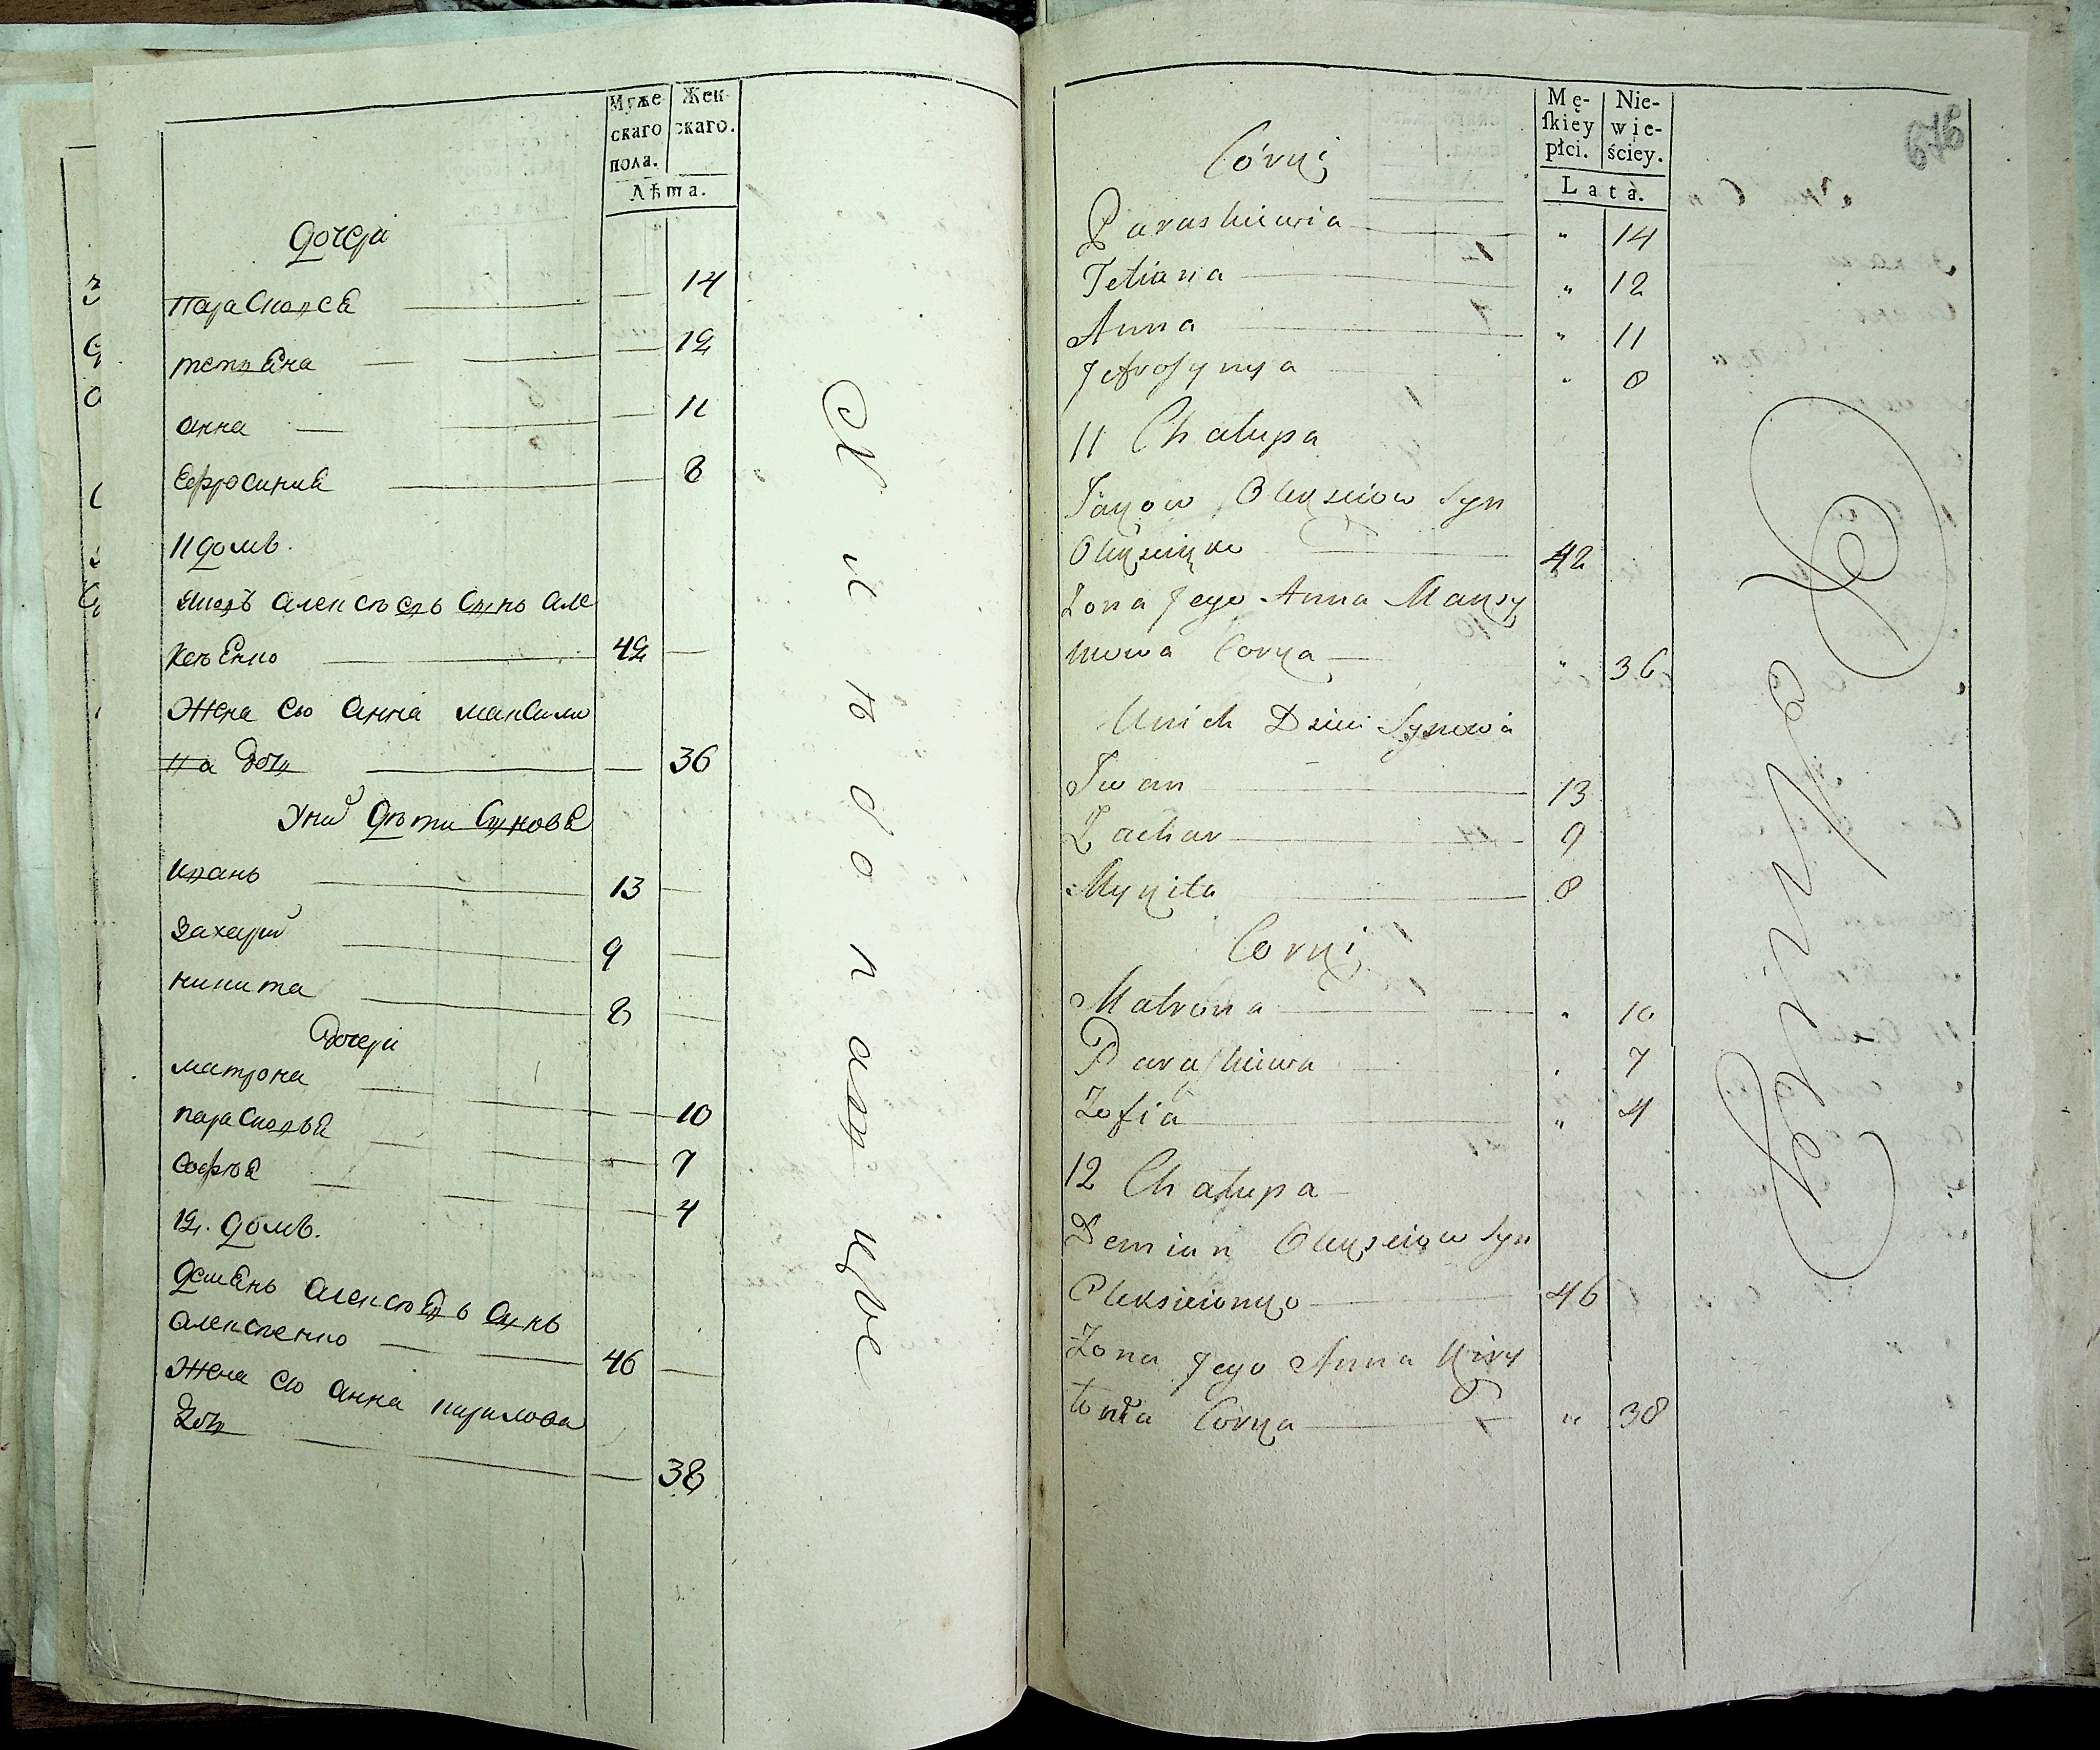 Муже-
скаго
пола.
Жен-
скаго.
Лѣта.
дочери
парасковея — 14
тетяна — 12
анна — 11
Ефросиния — 8
11 домъ.
яковъ алексѣевъ сынъ але
ксѣенко 42 —
жена ево анна максимо
ва дочь — 36
у них дѣти сыновя
иванъ 13 —
захарий 9 —
никита 8 —
дочери
матрона — 10
парасковья — 7
софѣя — 4
12. домъ.
демянъ алексѣевъ сынъ
алексеенко 46 —
жена ево анна кирилова
дочь — 38
Mę-
ſkiey
płci.
Nie-
wie-
ściey.
Lata.
676
Córki
Paraskiewia " 14
Tetiana " 12
Anna " 11
Jefrosynya " 8
11 Chałupa
Jakow Olexeiow Syn
Olexeięko 42
Żona Jego Anna Maksy
mowa Corka " 36
U nich Dzieci Synowia
Iwan 13
Zachar 9
Mykita 8
Corki
Matrona " 10
Paraskiewa " 7
Zofia " 4
12 Chałupa
Demian Olexeiow Syn
Oleksieionko 46
Żona Jego Anna Kiry
łowa Corka " 38